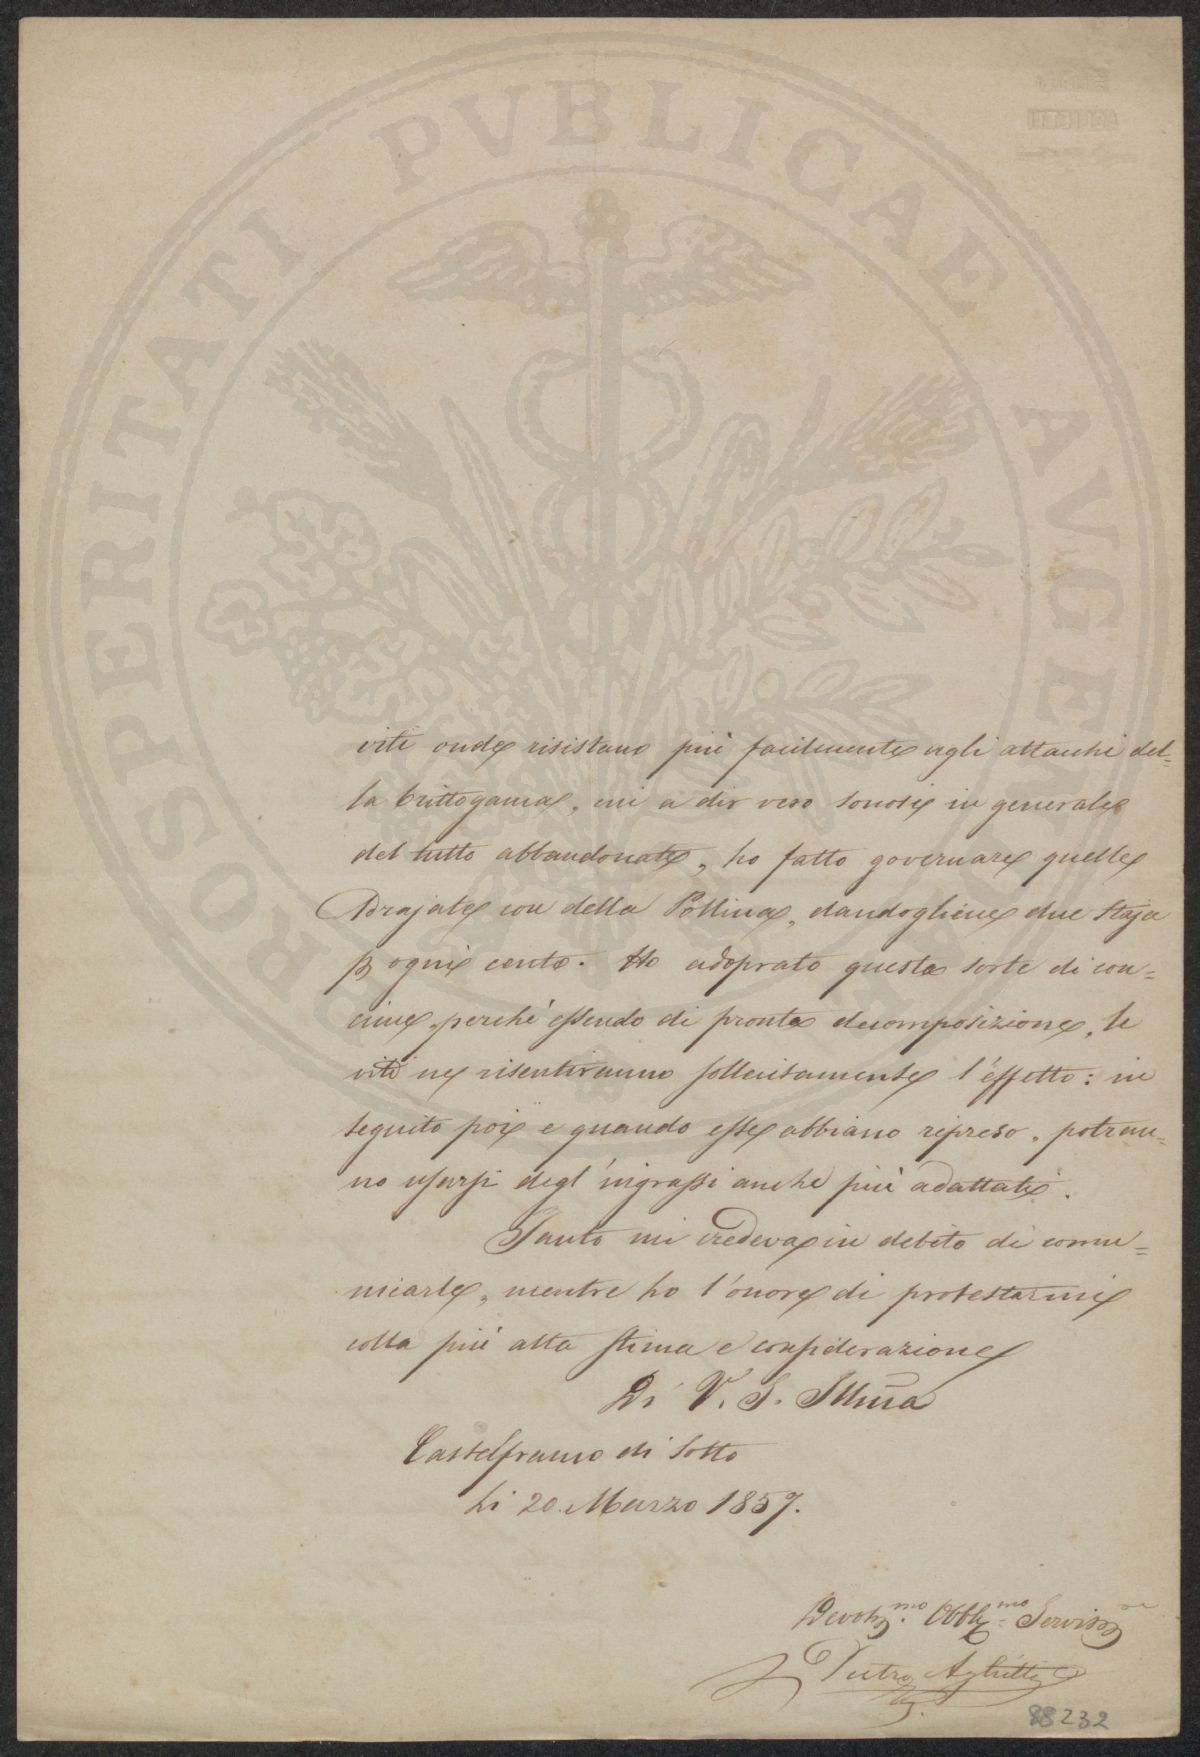 PROSPERITATI PVBLICAE AVGENDAE
viti onde risistano più facilmente agli attacchi del=
la Crittogama, mi a dir vero sonosi in generale
del tutto abbandonate, ho fatto governare quelle
Adrajate con della Pollina, dandogliene due Staja
p ogni cento. Ho adoprato questa sorte di con=
cime, perchè essendo di pronta decomposizione, le
viti ne risentiranno sollecitamente l'effetto: in
seguito poi e quando esse abbiano ripreso, potran=
no usarsi degl'ingrassi anche più adattati.
Tanto mi credeva in debito di comu=
nicarle, mentre ho l'onore di protestarmi
colla più alta stima e considerazione
Di V. S. Illma
Castelfranco di Sotto
Li 20. Marzo 1857.
Devotmo. Obblgmo Servitore
Pietro
88232